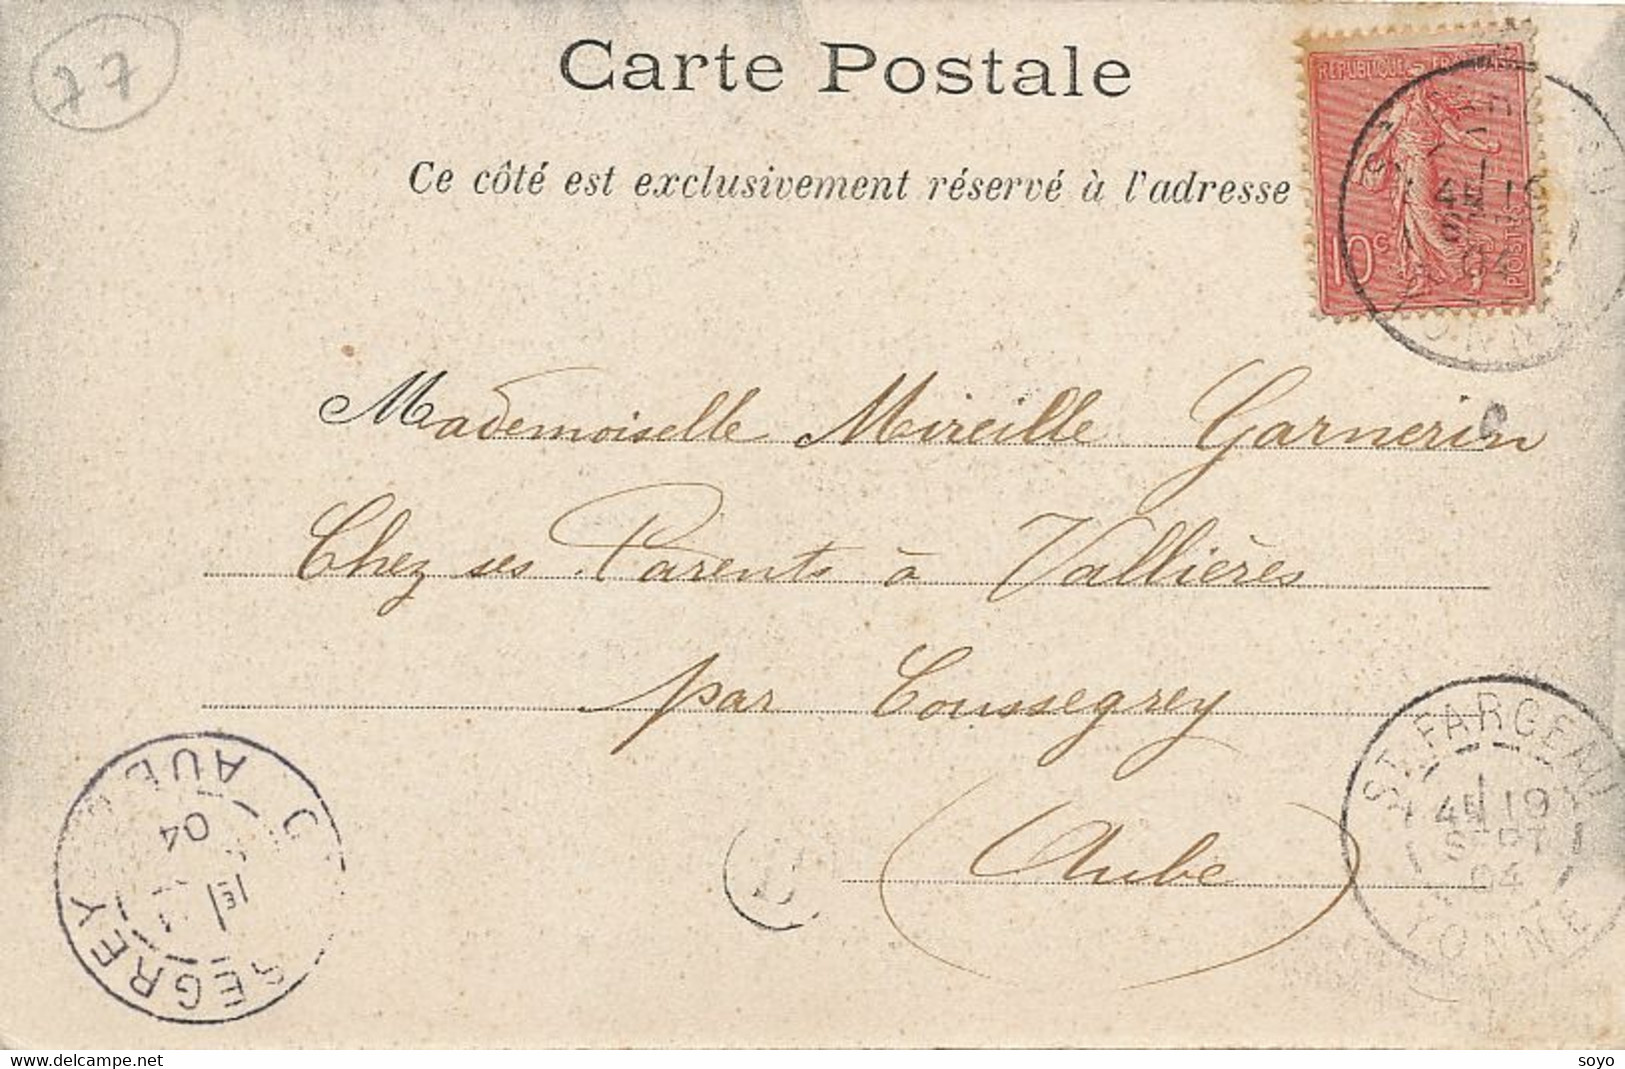 77
Carte Postale
Ce côté est exclusivement réservé à l'adresse
RÉPUBLIQUE FRANÇAISE
10c
POSTES
4E 19
04
YONNE
Mademoiselle Mireille Garnerin
Chez ses Parents à Vallières
par Coussegrey
(Aube)
ST FARGEAU
4E 19
SEPT
04
YONNE
SEGREY
AUBE
1E
04
soyo